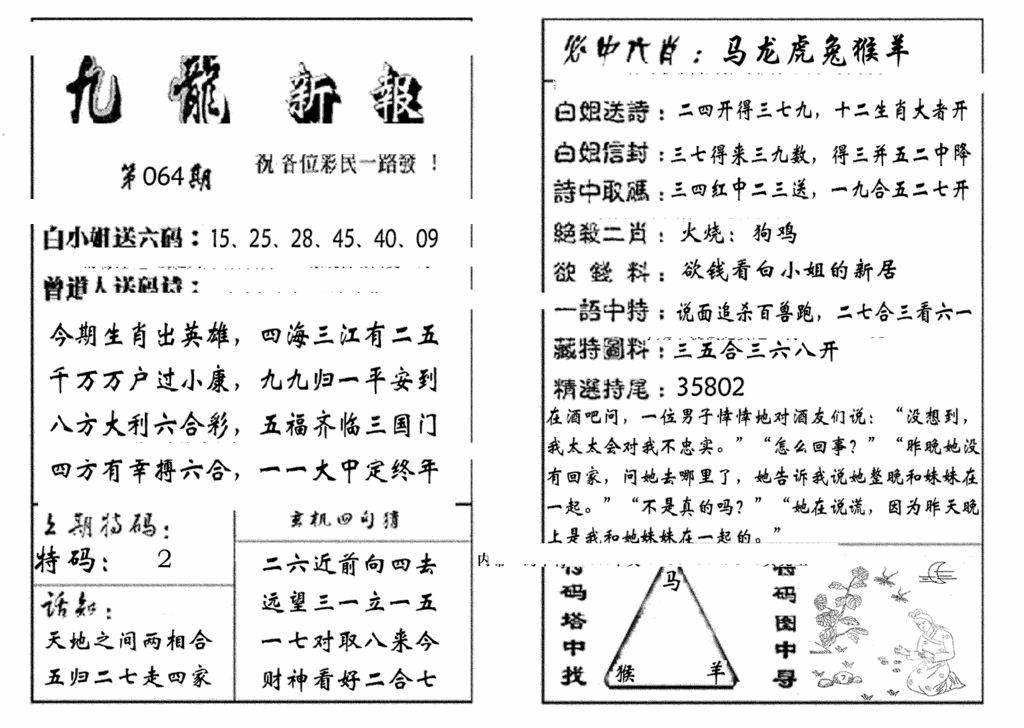 九龍新報
第064期
祝各位彩民一路發！
白小姐送六码：15、25、28、45、40、09
曾道人送码诗：
今期生肖出英雄，四海三江有二五
千万万户过小康，九九归一平安到
八方大利六合彩，五福齐临三国门
四方有幸搏六合，一一大中定终年
上期特码：
特码： 2
话知：
天地之间两相合
五归二七走四家
玄机四句猜
二六近前向四去
远望三一立一五
一七对取八来今
财神看好二合七
必中六肖：马龙虎兔猴羊
白姐送詩：二四开得三七九，十二生肖大者开
白姐信封：三七得来三九数，得三并五二中降
詩中取碼：三四红中二三送，一九合五二七开
絕殺二肖：火烧：狗鸡
欲錢料：欲钱看白小姐的新居
一語中特：说面追杀百兽跑，二七合三看六一
藏特圖料：三五合三六八开
精選特尾：35802
在酒吧问，一位男子悻悻地对酒友们说：“没想到，
我太太会对我不忠实。”“怎么回事？”“昨晚她没
有回家，问她去哪里了，她告诉我说她整晚和妹妹在
一起。”“不是真的吗？”“她在说谎，因为昨天晚
上是我和她妹妹在一起的。”
内
特码塔中找
马
猴 羊
特码图中寻